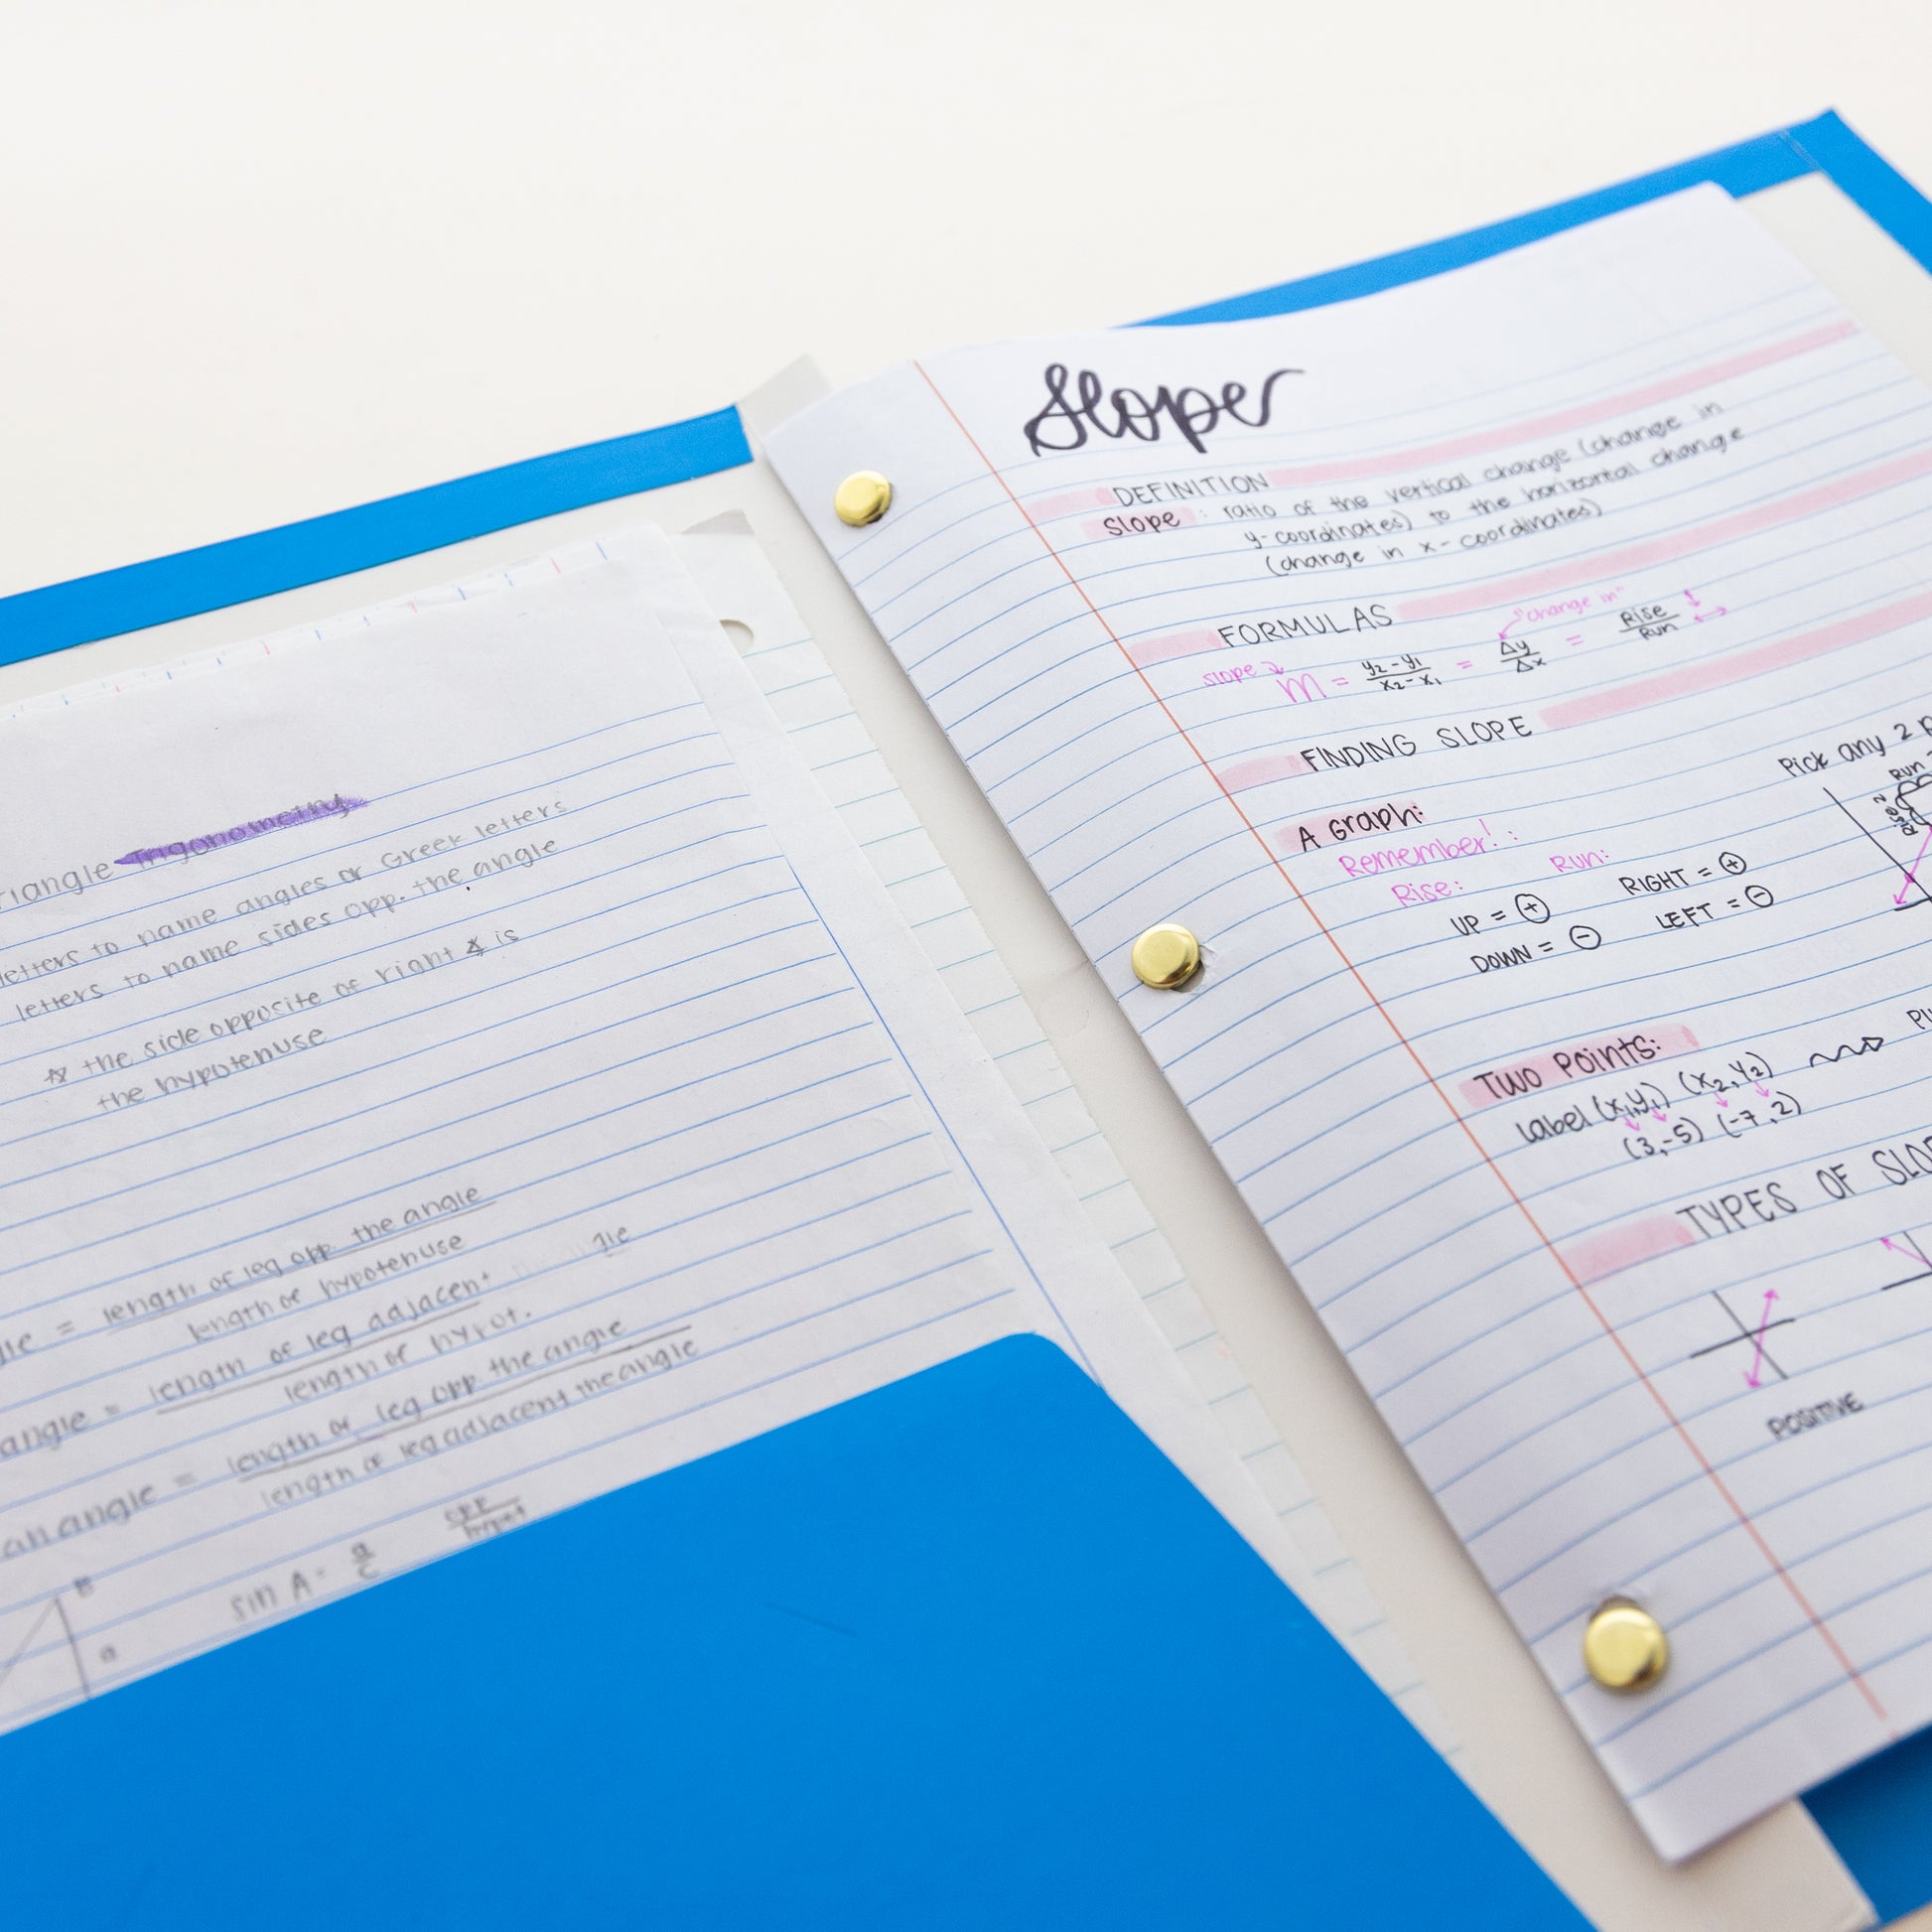 riangle Trigonometry
letters to name angles or Greek letters
letters to name sides opp. the angle
☆ the side opposite of right ∡ is
the hypotenuse
gle = length of leg opp the angle
length of hypotenuse
angle = length of leg adjacent gle
length of hypot.
an angle = length of leg opp. the angle
length of leg adjacent the angle
sin A = a/c opp/hypot
B
a
Slope
DEFINITION
Slope : ratio of the vertical change (change in
y-coordinates) to the horizontal change
(change in x-coordinates)
FORMULAS
"change in"
slope m = y₂-y₁/x₂-x₁ = Δy/Δx = Rise/Run
FINDING SLOPE
A Graph:
Pick any 2 P
Run
Rise 2
Remember! :
Rise: Run:
UP = ⊕ RIGHT = ⊕
DOWN = ⊖ LEFT = ⊖
TWO POINTS:
Label (x₁,y₁) (x₂,y₂)
(3,-5) (-7,2)
TYPES OF SLOP
POSITIVE